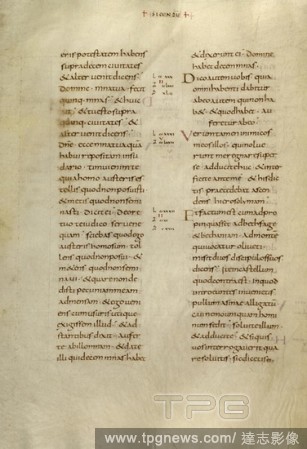 eris potestatem habens
supra decem ciuitates
& alter uenit dicens
quinq; mnas & huic
ait & tu esto supra
quinq; ciuitates &
alter uenit dicens
dne ecce mna tua
habui repositam in su
dario timui enim te
quia homo austeris es
tollis quod non posuisti
& metis quod non semi
nasti Dicit ei De ore
tuo te iudico serue ne
quam sciebas quod ego
austeris homo sum tol
lens quod non posui &
metens quod non semi
naui & quare non de
disti pecuniam meam
ad mensam & ego ueni
ens cum usuris utique
exigissem illud & ad
stantibus dixit aufer
te ab illo mnam & date
illi qui decem mnas hab&
& dixerunt ei Domine
hab& decem mnas
Dico autem uobis quia
omni habenti dabitur
ab eo autem qui non ha
b& & quod hab& au
fer&ur ab eo
Verum tamen inimicos
meos illos qui nolue
runt me regnare super
se adducite huc & inter
ficite ante me & his dic
tis praecedebat ascen
dens hierosolymam
Et factum est cum adpro
pinquass& ad
& bethaniam ad montem
qui uocatur oliueti
misit duos discipulos suos
dicens ite in castellum
quod contra est in quod
introeuntes inueni&is
pullum asinae alligatum
cui nemo umquam homi
num sedit soluite illum
& adducite & si quis
uos interrogauerit qua
re soluitis sic dic&is
TPG
www.tpgnews.com/ 達志影像